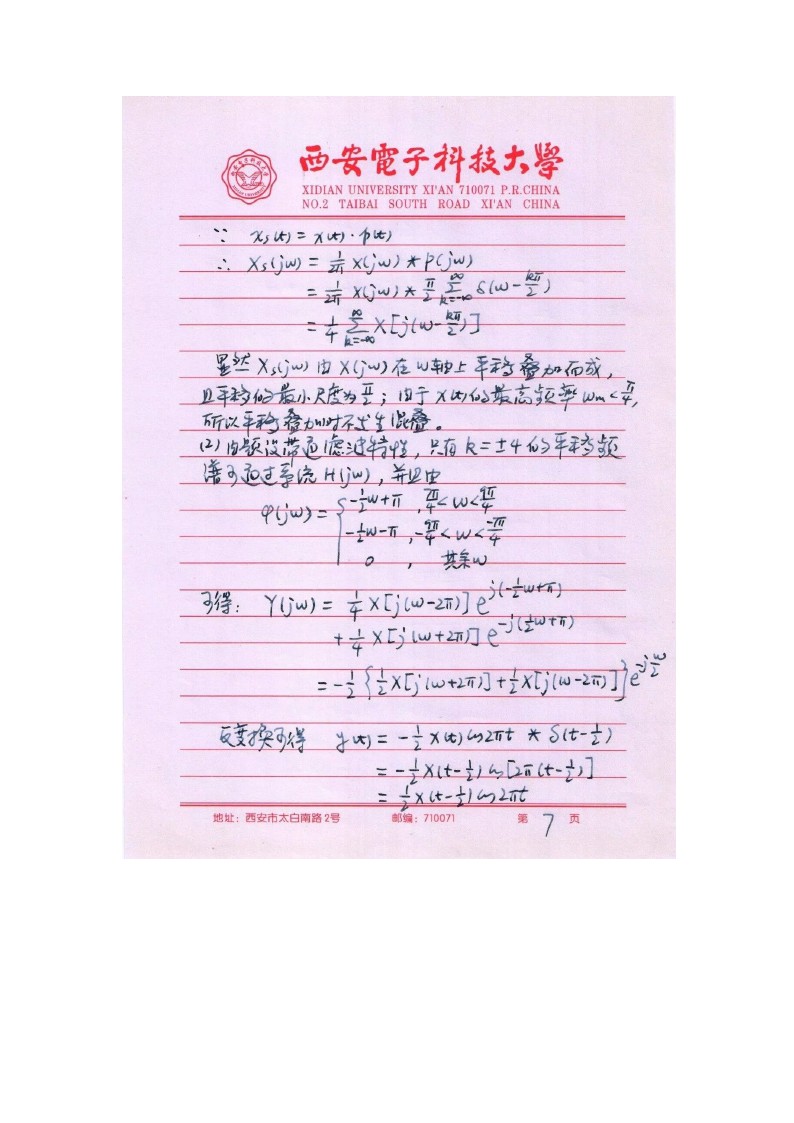 西安電子科技大學
XIDIAN UNIVERSITY XI'AN 710071 P.R.CHINA
NO.2 TAIBAI SOUTH ROAD XI'AN CHINA
∵ xs(t) = x(t)·p(t)
∴ Xs(jω) = 1/2π X(jω) * P(jω)
= 1/2π X(jω) * π/2 ∑_{k=-∞}^{∞} δ(ω - kπ/2)
= 1/4 ∑_{k=-∞}^{∞} X[j(ω - kπ/2)]
显然 Xs(jω) 由 X(jω) 在 ω轴上平移叠加而成,
且平移的最小尺度为 π/2; 由于 x(t)的最高频率 ωm < π/4,
所以平移叠加时不发生混叠。
(2) 由题设带通滤波特性, 只有 k=±4 的平移频
谱可通过系统 H(jω), 并且由
φ(jω) = { -1/2ω+π , 7π/4 < ω < 9π/4
-1/2ω-π , -9π/4 < ω < -7π/4
0 , 其余ω
可得: Y(jω) = 1/4 X[j(ω-2π)] e^{j(-1/2ω+π)}
+ 1/4 X[j(ω+2π)] e^{-j(1/2ω+π)}
= -1/2 {1/2 X[j(ω+2π)] + 1/2 X[j(ω-2π)]} e^{-jω/2}
反变换可得 y(t) = -1/2 x(t) cos2πt * δ(t-1/2)
= -1/2 x(t-1/2) cos[2π(t-1/2)]
= 1/2 x(t-1/2) cos2πt
地址: 西安市太白南路2号 邮编: 710071 第 7 页